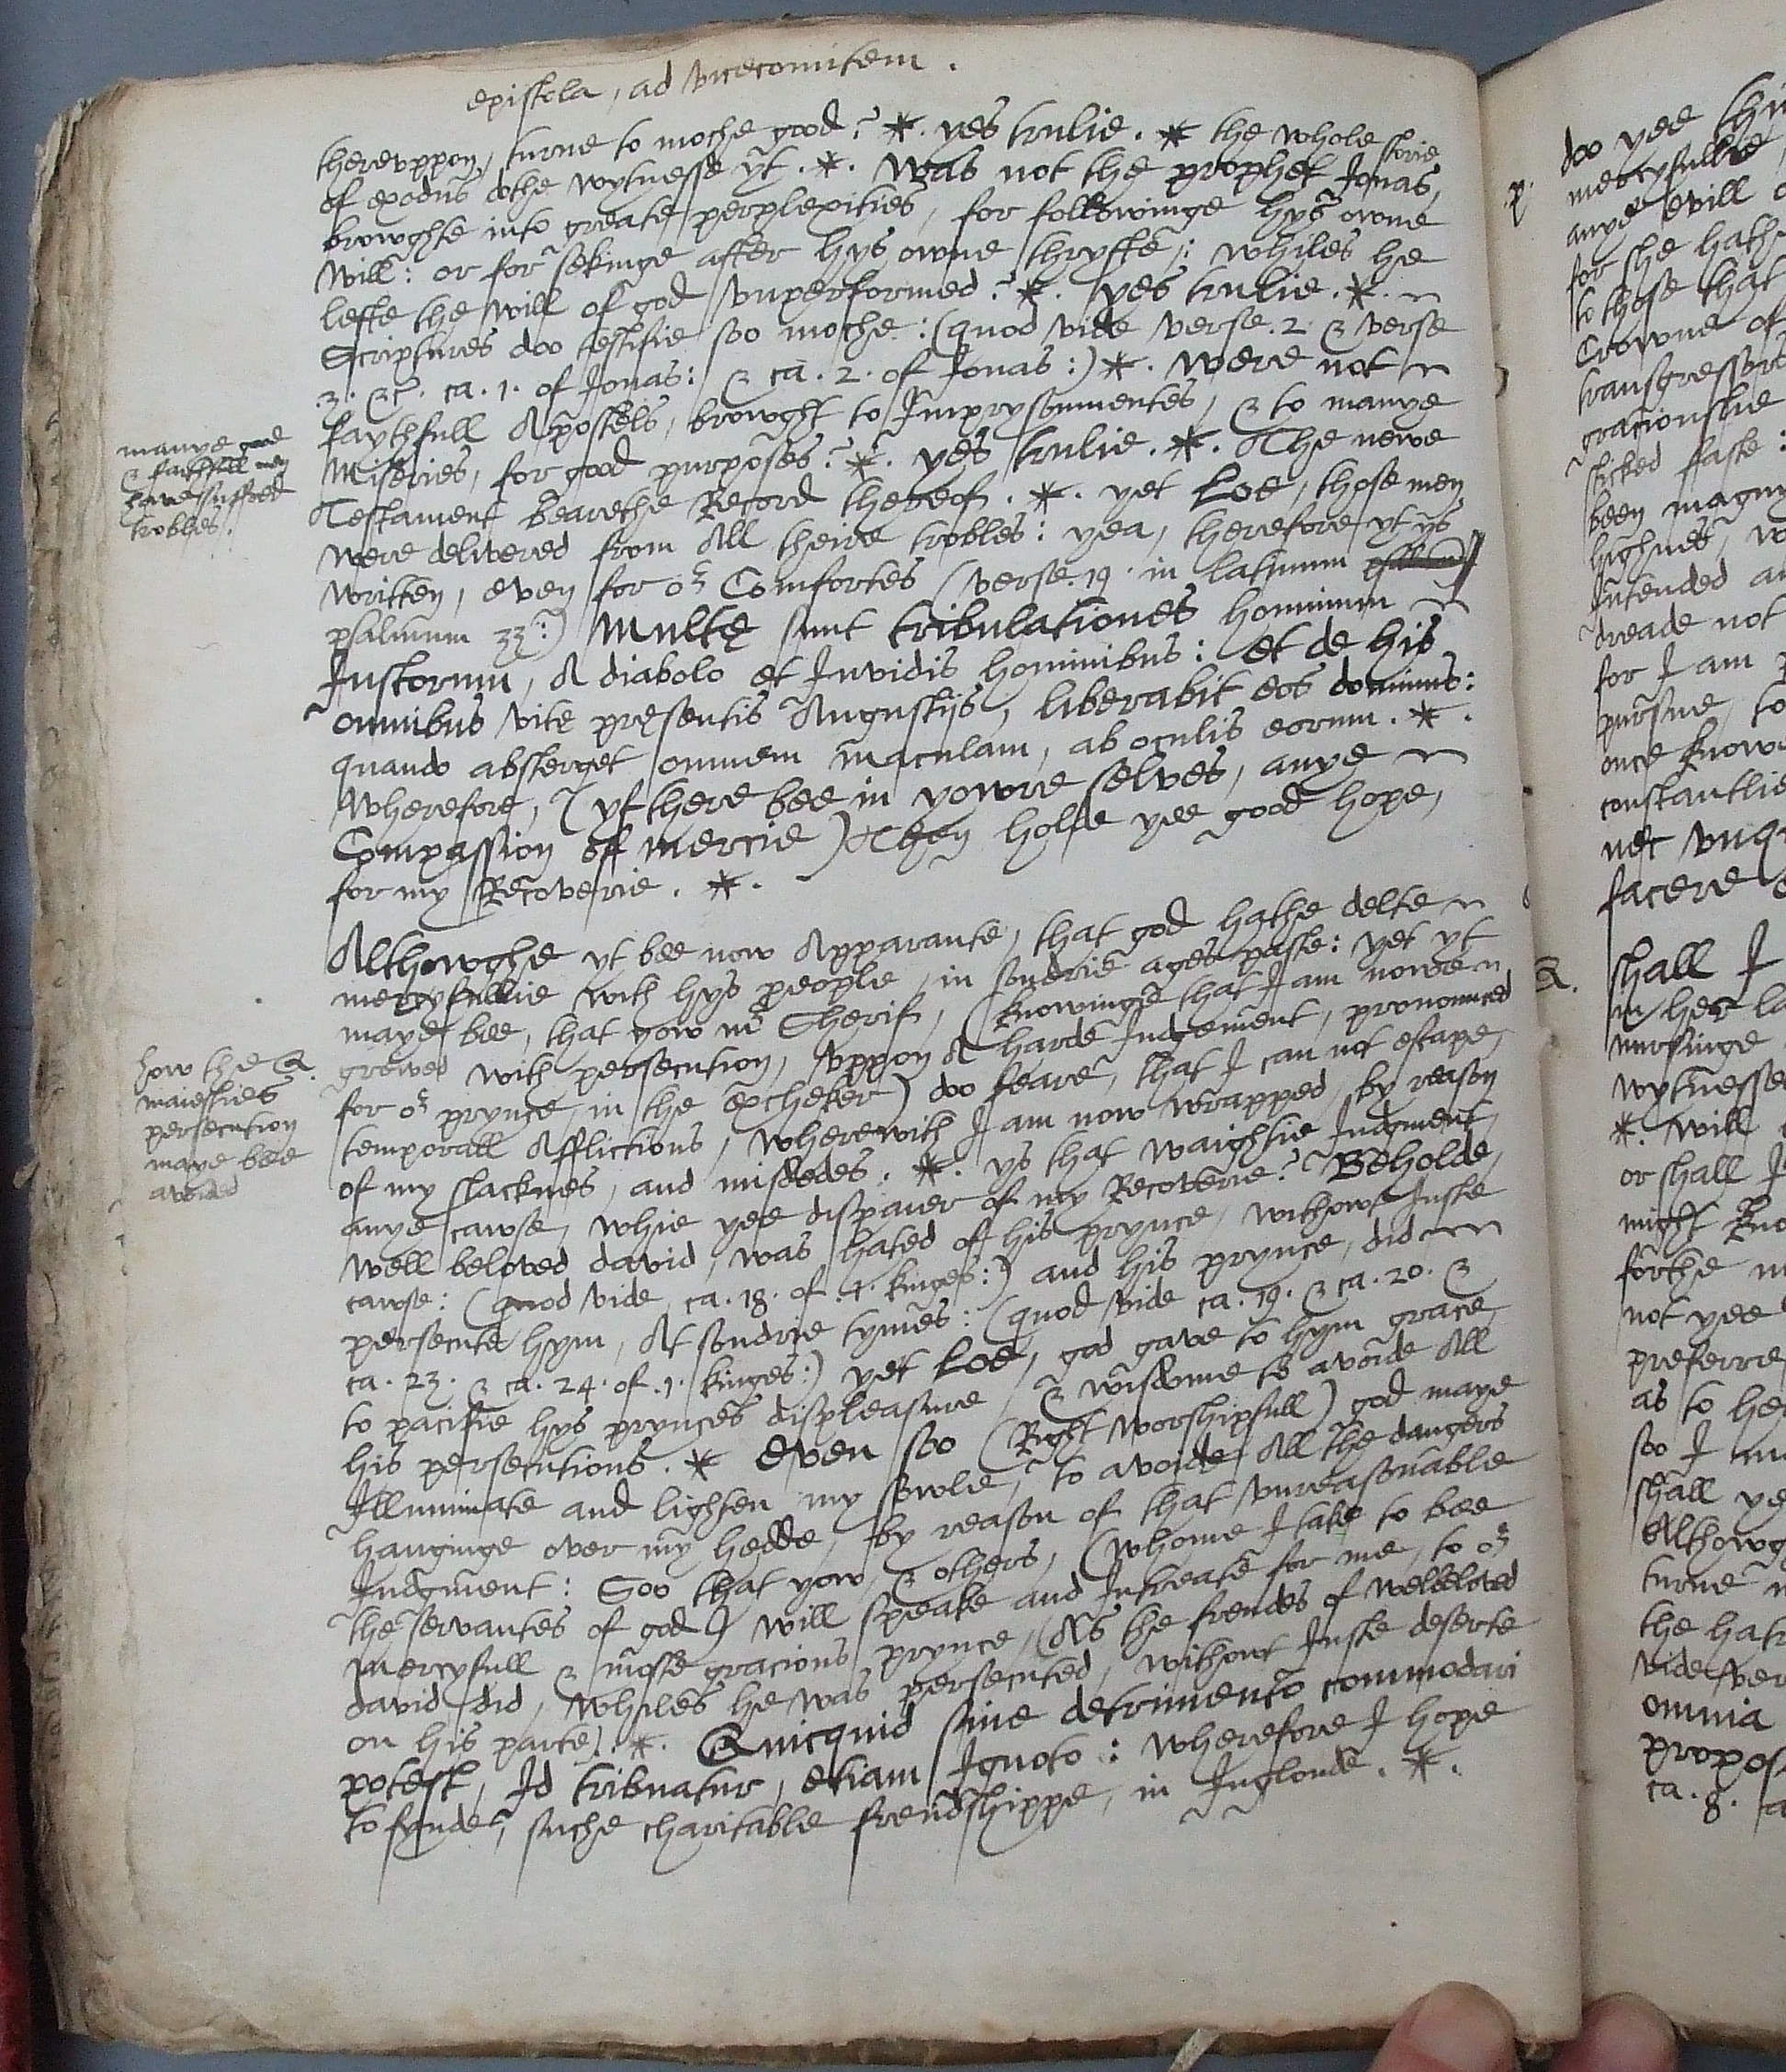 epistola, ad vicecomitem.
therevppon, turne to moche good? *. yes trulie. * the whole storie
of exodus dothe wytnesse yt. *. Was not the prophet Jonas,
browghte into greate perplexities, for followinge hys owne
will: or for sekinge after hys owne thryfte,: whiles he
lefte the will of god vnperformed? *. yes trulie. *.
Scriptures doo testifie soo moche: (quod vide verse. 2. & verse
.3. &c. ca. 1. of Jonas: & ca. 2. of Jonas:) *. were not
faythfull Apostels, browght to Imprysonmentes, & to manye
Miseries, for good purposes? *. yes trulie. *. The newe
Testament bearethe Record thereof. *. yet Loe, those men
were delivered from All theire trobles: yea, therefore yt ys
written, even for or Comfortes (verse. 19. in latinum
psalmum 33:) Multę sunt tribulationes hominum
Justorum, A diabolo et Invidis hominibus: et de his
omnibus vitę pręsentis Angustijs, liberabit eos dominus:
quando absterget omnem maculam, ab oculis eorum. *.
Wherefore, (yf there bee in yowre selves, anye
Compassion of mercie) Then holde yee good hope,
for my Recoverie. *.
manye good
& faithfull men
have suffred
trobles.
Althowghe yt bee now Apparante, that god hathe delte
mercyfullie with hys people, in sondrie ages paste: yet yt
maye bee, that yow mr Sherif, (knowinge that I am nowe
greved with persecution, vppon A harde Judgement, pronounced
for or prynce, in the excheker) doo feare, that I can not escape,
temporall Afflictions, wherewith I am now wrapped, by reason
of my slacknes, and misdedes. *. ys that waightie Judgment,
anye cawse, whie yee dispaier of my Recoverie? Beholde,
well beloved david, was hated of his prynce, withowt Juste
cawse: (quod vide, ca. 18. of .1. kinges:) and his prynce, did
persecute hym, At sondrie tymes: (quod vide ca. 19. & ca. 20. &
ca. 23. & ca. 24. of .1. kinges:) yet Loe, god gave to hym grace,
to pacifie hys prynces displeasure, & wisdome to avoide All
his persecutions. * Even soo (Right worshipfull) god maye
Illuminate and lighten my sowle, to avoide All the dangers
hanginge over my hedde, by reason of that vnreasonable
Judgment: Soo that yow, & others, (whome I take to bee
the servantes of god) will speake and Intreate for me, to or
mercyfull & moste gracious prynce, (As the frendes of welbeloved
david did, whiles he was persecuted, without Juste deserte
on his parte). *. Quicquid sine detrimento commodari
potest, Id tribuatur, etiam Ignoto: wherefore I hope
to fynde, suche charitable frendshippe, in Inglonde. *.
how the Q.
maiesties
persecution
maye bee
avoided
doo yee
.p. mercyfull
anye evill
for she hath
to those that
Crowne of
transgressors
graciouslie
sticked faste:
been
highnes,
Intended
dreade not
for I am
pursue, to
once
constantlie
facere
Q. shall I
in her
nursinge
wytnesse
*. will
or shall I
might
forthe
not yee
preferre
as to
soo I
shall
Althowg
turne
the
vide ver
omnia
propos
ca. 8.